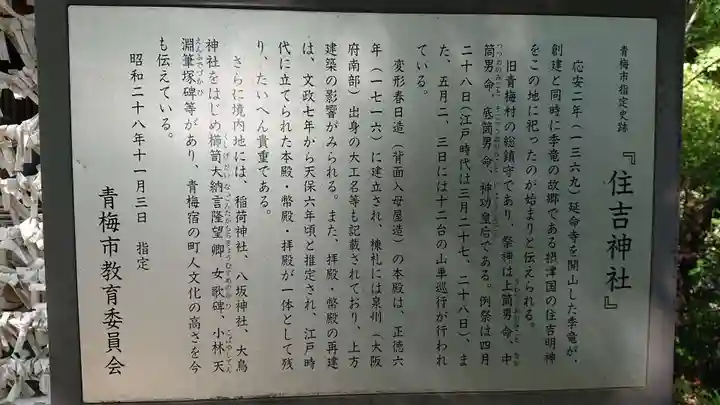 青梅市指定史跡
『住吉神社』
応安二年(一三六九)延命寺を開山した季竜が、
創建と同時に季竜の故郷である摂津国の住吉明神
をこの地に祀ったのが始まりと伝えられる。
旧青梅村の総鎮守であり、祭神は上筒男命、中
筒男命、底筒男命、神功皇后である。例祭は四月
二十八日(江戸時代は三月二十七、二十八日)、ま
た、五月二、三日には十二台の山車巡行が行われ
ている。
変形春日造(背面入母屋造)の本殿は、正徳六
年(一七一六)に建立され、棟札には泉州(大阪
府南部)出身の大工名等も記載されており、上方
建築の影響がみられる。また、拝殿・幣殿の再建
は、文政七年から天保六年頃と推定され、江戸時
代に立てられた本殿・幣殿・拝殿が一体として残
り、たいへん貴重である。
さらに境内地には、稲荷神社、八坂神社、大鳥
神社をはじめ櫛笥大納言隆望卿女歌碑、小林天
淵筆塚碑等があり、青梅宿の町人文化の高さを今
も伝えている。
昭和二十八年十一月三日 指定
青梅市教育委員会